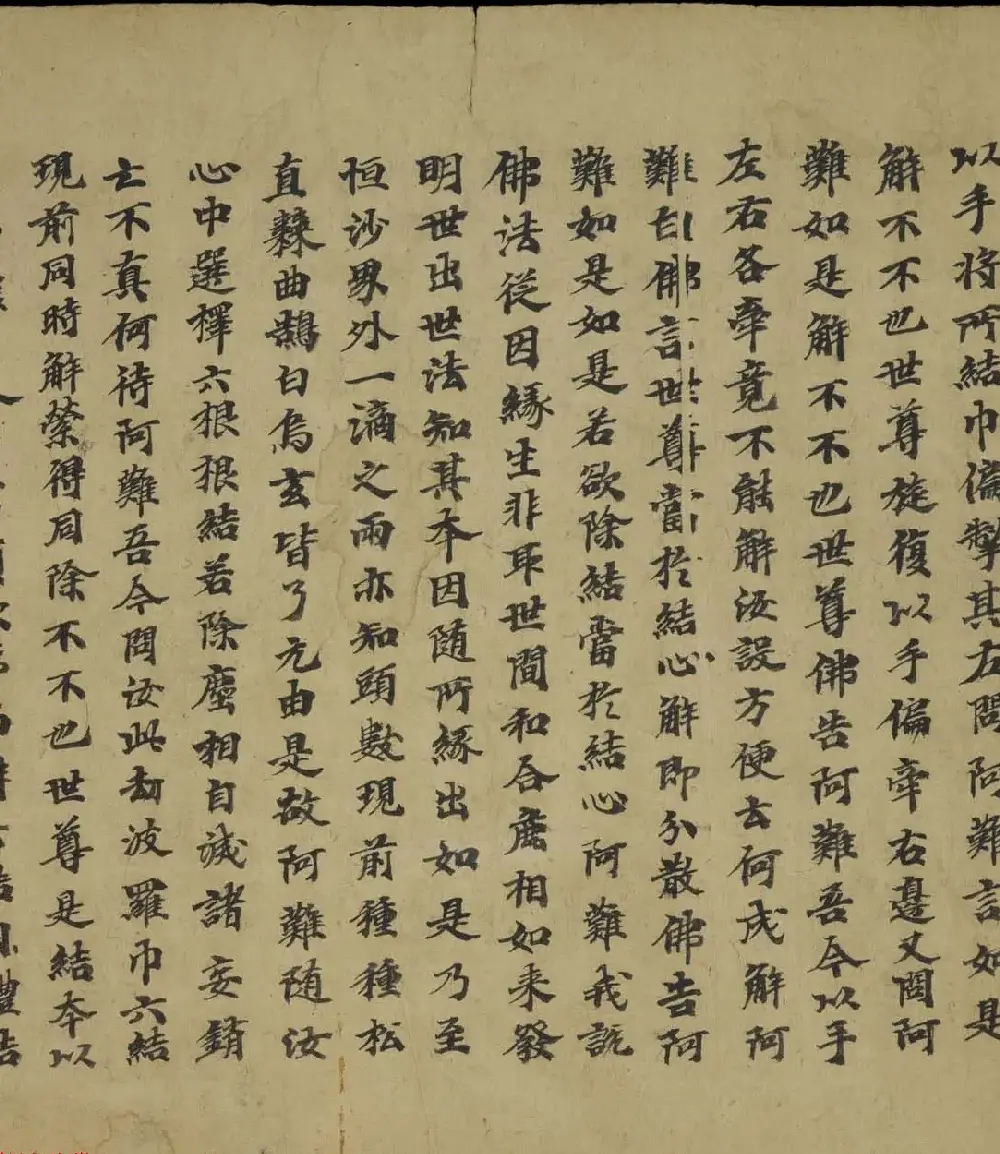 以手将所結巾偏掣其左問阿難言如是
解不不也世尊旋復以手偏牵右邊又問阿
難如是解不不也世尊佛告阿難吾今以手
左右各牵竟不能解汝設方便云何成解阿
難白佛言世尊當於結心解即分散佛告阿
難如是如是若欲除結當於結心阿難我說
佛法從因緣生非取世間和合麁相如来發
明世出世法知其本因随所緣出如是乃至
恒沙界外一滴之雨亦知頭數現前種種松
直棘曲鵠白烏玄皆了元由是故阿難随汝
心中選擇六根根結若除塵相自滅諸妄銷
亡不真何待阿難吾今問汝此劫波羅巾六結
現前同時解縈得同除不不也世尊是結本以